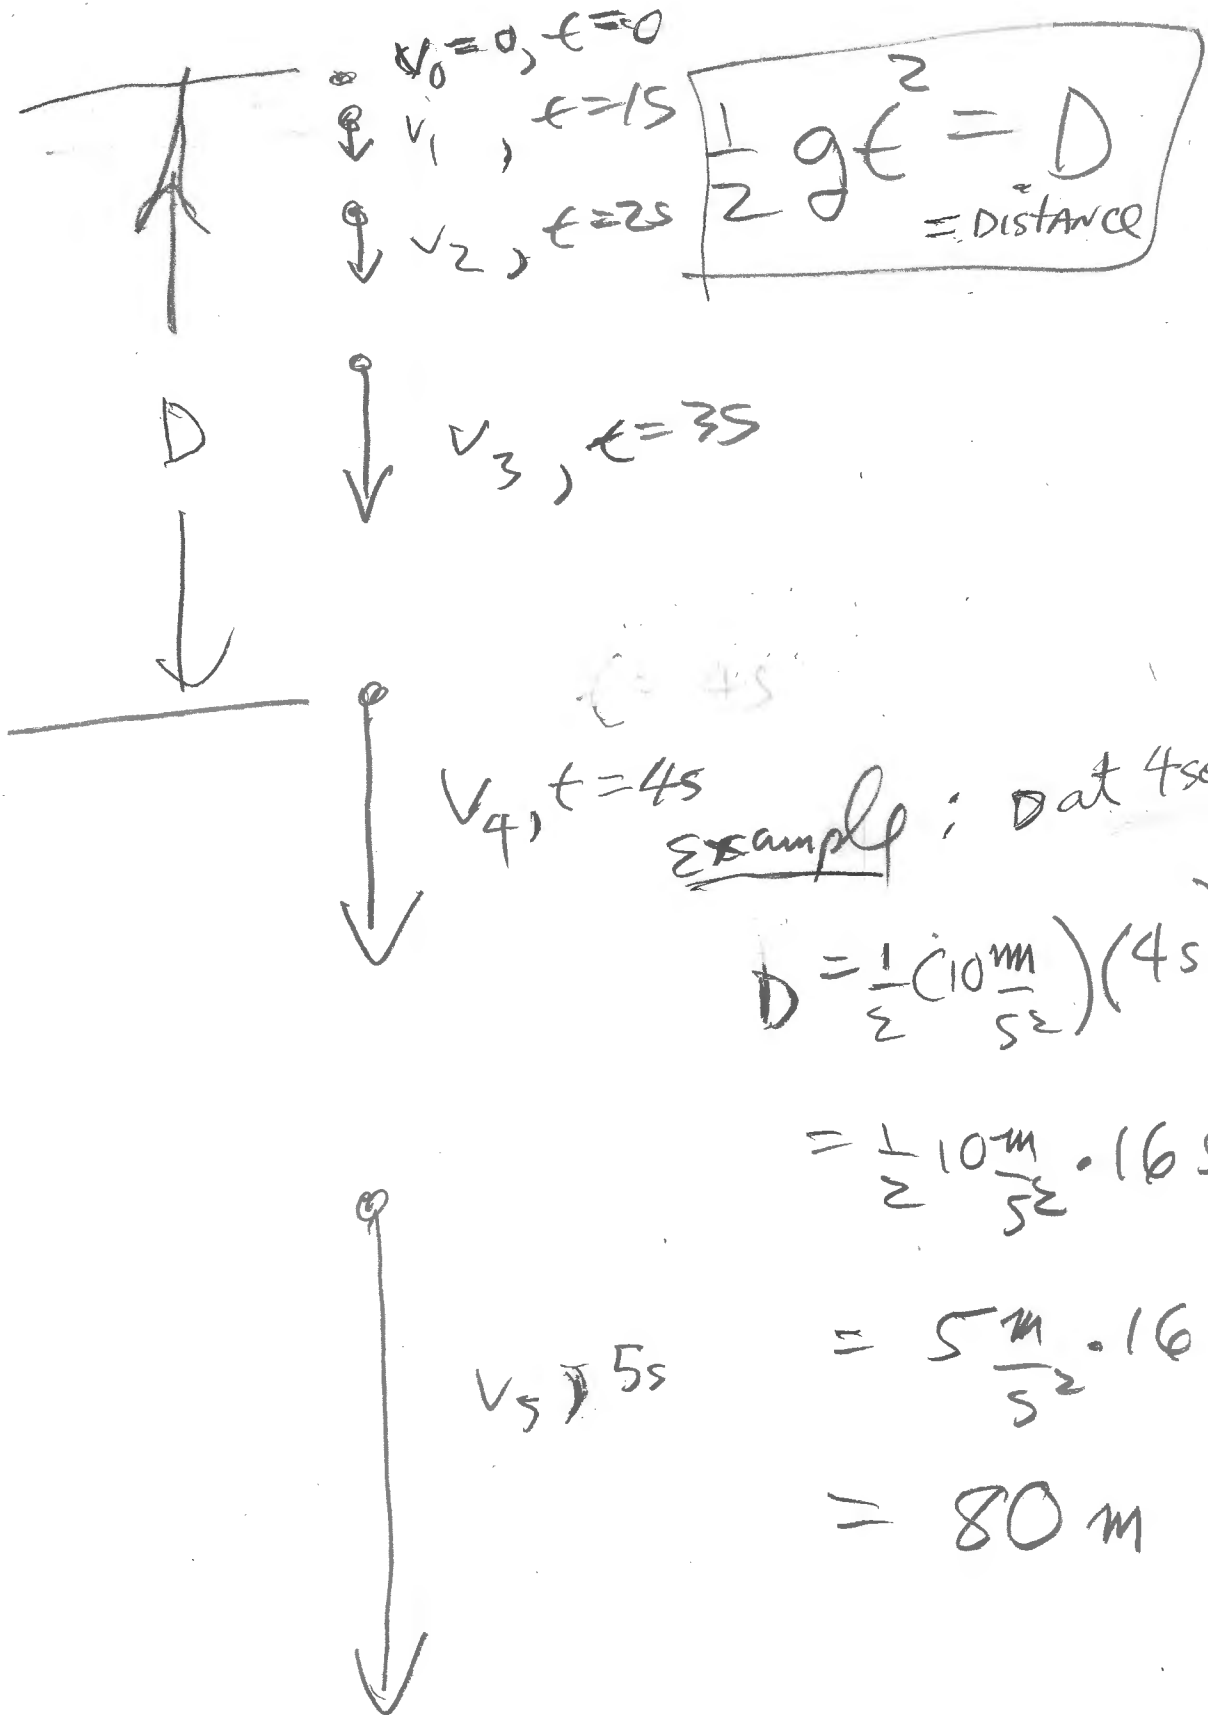 v₀=0, t=0
v₁, t=1s
v₂, t=2s
½ gt² = D
= DISTANCE
D
v₃, t=3s
t= 4s
v₄, t=4s
Example: D at 4se
D = ½ (10 m/s²)(4s
= ½ 10 m/s² · 16 s
= 5 m/s² · 16
= 80 m
v₅, 5s